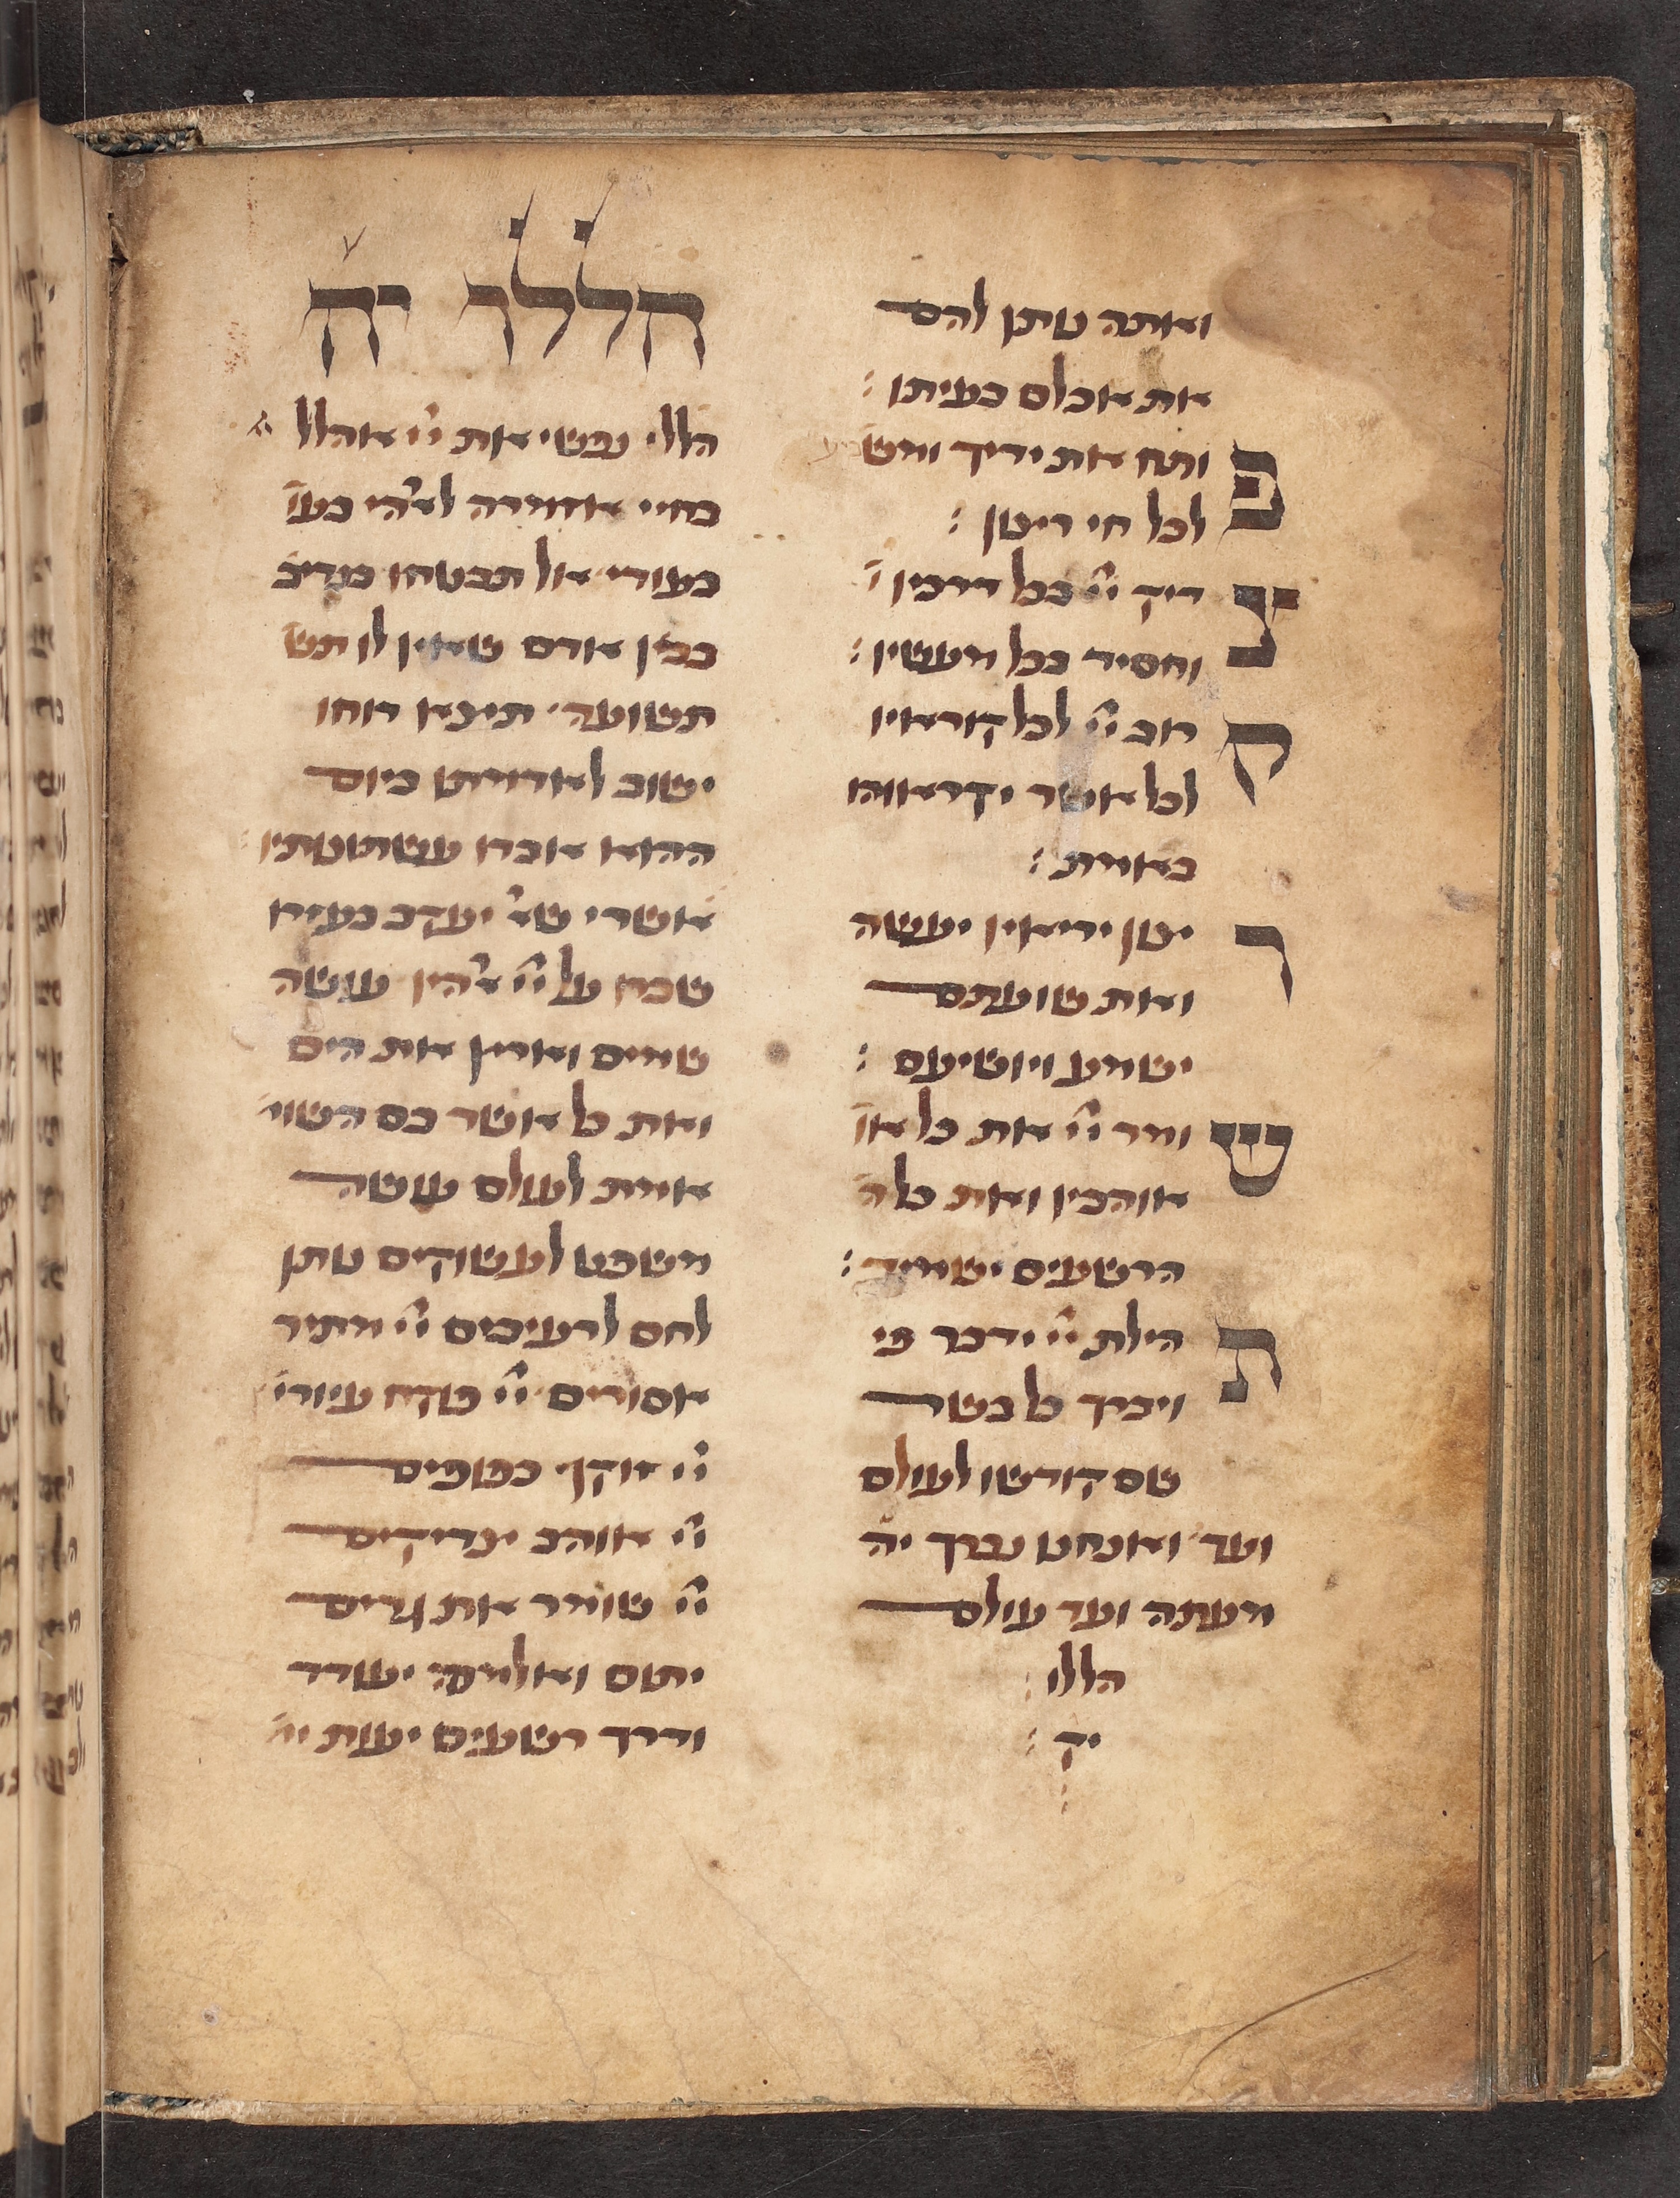 ואתה נותן להם
את אכלם בעיתו :
פותח את ידיך ומש
לכל חי רצון :
צדיק ייי בכל דרכיו
וחסיד בכל מעשיו :
קרוב ייי לכל קוראיו
לכל אשר יקראוהו
באמת :
רצון יריאיו יעשה
ואת שועתם
ישמע ויושיעם :
שומר ייי את כל או
אוהביו ואת כל ה
הרשעים ישמיד :
תהילת ייי ידבר פי
ויברך כל בשר
שם קודשו לעולם
ועד ואנחנו נברך יה
מעתה ועד עולם
הללו
יה :
הללו יה
הללי נפשי את ייי אהלל
בחיי אזמרה לאהי בעו
בעודי אל תבטחו בנדיב
בבן אדם שאין לו תש
תשועה תיצא רוחו
ישוב לאדמתו ביום
ההוא אבדו עשתונותיו
אשרי שא יעקב בעזרו
שברו על ייי אהיו עושה
שמים וארץ את הים
ואת כל אשר בם השומ
אמת לעולם עושה
משפט לעשוקים נותן
לחם לרעיבים ייי מתיר
אסורים ייי פוקח עיורי
ייי זוקף כפופים
ייי אוהב צדיקים
ייי שומר את גרים
יתום ואלמנה יעודד
ודרך רשעים יעות ימ